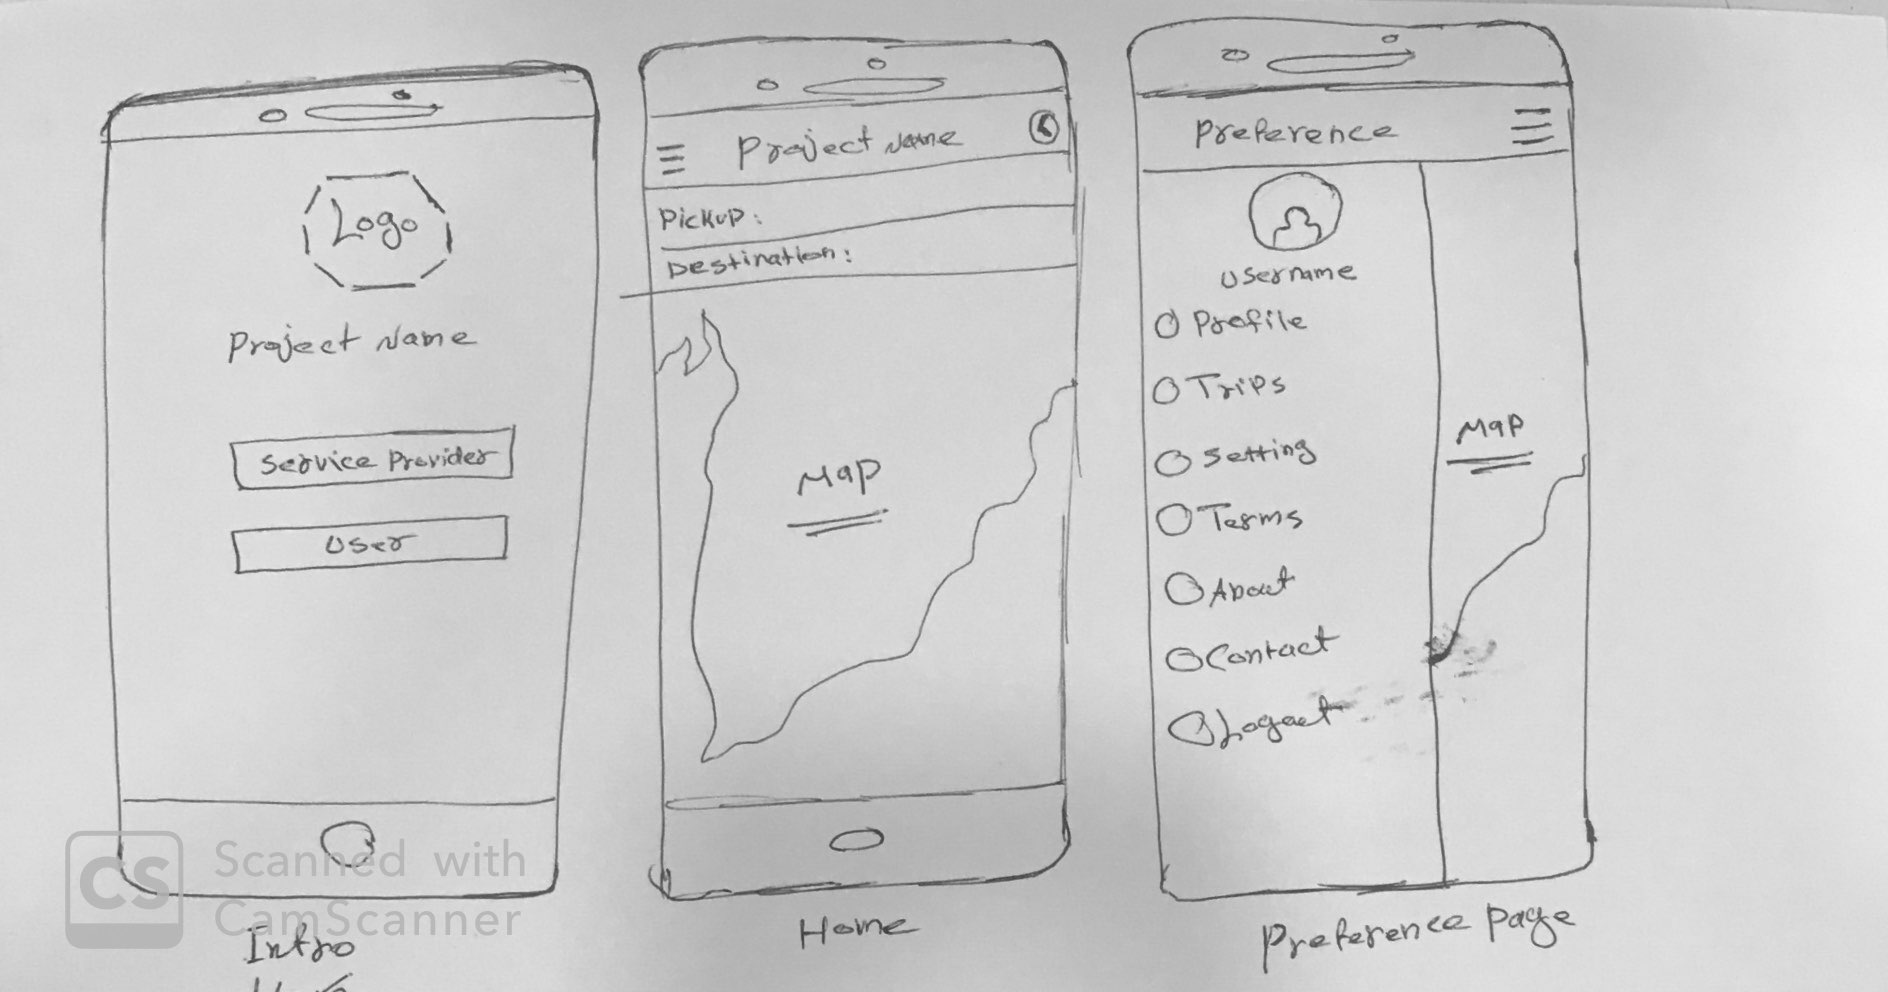 Logo
Project Name
Service Provider
User
Intro
Project Name
Pickup:
Destination:
Map
Home
Preference
Username
Profile
Trips
Setting
Terms
About
Contact
Logout
Map
Preference Page
CS
Scanned with
CamScanner